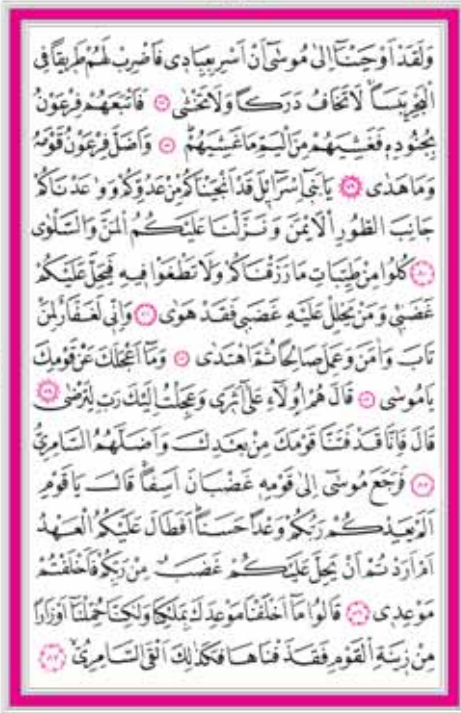 وَلَقَدْ اَوْحَيْنَٓا اِلٰى مُوسٰٓى اَنْ اَسْرِ بِعِبَاد۪ى فَاضْرِبْ لَهُمْ طَر۪يقًا فِى
الْبَحْرِ يَبَسًاۙ لَا تَخَافُ دَرَكًا وَلَا تَخْشٰى ﴿٧٧﴾ فَاَتْبَعَهُمْ فِرْعَوْنُ
بِجُنُودِه۪ فَغَشِيَهُمْ مِنَ الْيَمِّ مَا غَشِيَهُمْۜ ﴿٧٨﴾ وَاَضَلَّ فِرْعَوْنُ قَوْمَهُ
وَمَا هَدٰى ﴿٧٩﴾ يَا بَن۪ٓى اِسْرَٓائ۪لَ قَدْ اَنْجَيْنَاكُمْ مِنْ عَدُوِّكُمْ وَوٰعَدْنَاكُمْ
جَانِبَ الطُّورِ الْاَيْمَنَ وَنَزَّلْنَا عَلَيْكُمُ الْمَنَّ وَالسَّلْوٰى
﴿٨٠﴾ كُلُوا مِنْ طَيِّبَاتِ مَا رَزَقْنَاكُمْ وَلَا تَطْغَوْا ف۪يهِ فَيَحِلَّ عَلَيْكُمْ
غَضَب۪ىۚ وَمَنْ يَحْلِلْ عَلَيْهِ غَضَب۪ى فَقَدْ هَوٰى ﴿٨١﴾ وَاِنّ۪ى لَغَفَّارٌ لِمَنْ
تَابَ وَاٰمَنَ وَعَمِلَ صَالِحًا ثُمَّ اهْتَدٰى ﴿٨٢﴾ وَمَٓا اَعْجَلَكَ عَنْ قَوْمِكَ
يَا مُوسٰى ﴿٨٣﴾ قَالَ هُمْ اُو۬لَٓاءِ عَلٰٓى اَثَر۪ى وَعَجِلْتُ اِلَيْكَ رَبِّ لِتَرْضٰى ﴿٨٤﴾
قَالَ فَاِنَّا قَدْ فَتَنَّا قَوْمَكَ مِنْ بَعْدِكَ وَاَضَلَّهُمُ السَّامِرِىُّ
﴿٨٥﴾ فَرَجَعَ مُوسٰٓى اِلٰى قَوْمِه۪ غَضْبَانَ اَسِفًاۚ قَالَ يَا قَوْمِ
اَلَمْ يَعِدْكُمْ رَبُّكُمْ وَعْدًا حَسَنًاۜ اَفَطَالَ عَلَيْكُمُ الْعَهْدُ
اَمْ اَرَدْتُمْ اَنْ يَحِلَّ عَلَيْكُمْ غَضَبٌ مِنْ رَبِّكُمْ فَاَخْلَفْتُمْ
مَوْعِد۪ى ﴿٨٦﴾ قَالُوا مَٓا اَخْلَفْنَا مَوْعِدَكَ بِمَلْكِنَا وَلٰكِنَّا حُمِّلْنَٓا اَوْزَارًا
مِنْ ز۪ينَةِ الْقَوْمِ فَقَذَفْنَاهَا فَكَذٰلِكَ اَلْقَى السَّامِرِىُّۙ ﴿٨٧﴾